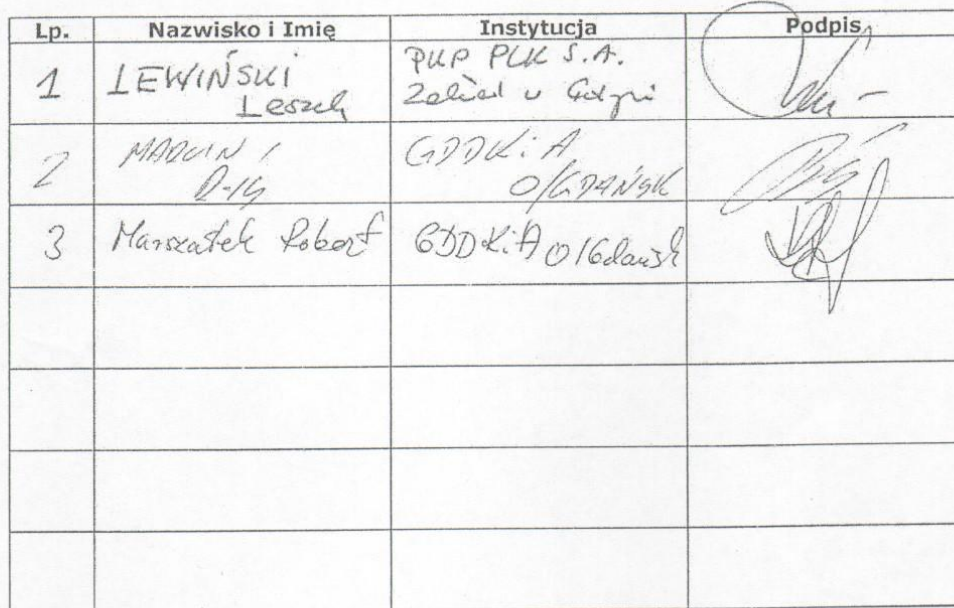 Lp. Nazwisko i Imię Instytucja Podpis
1 LEWIŃSKI PKP PLK S.A.
Leszek Zakład w Gdyni
2 MARCIN GDDKiA
O/GDAŃSK
3 Marszałek Robert GDDKiA O/Gdańsk